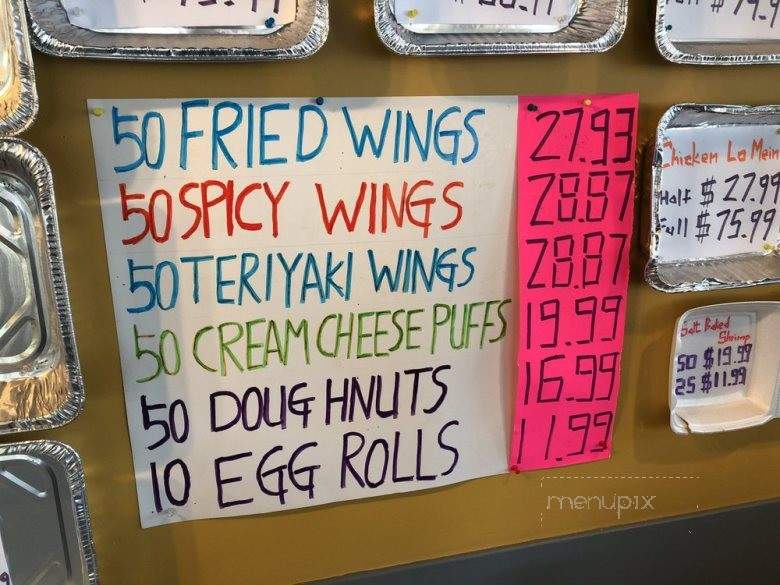 50 FRIED WINGS 27.93
50 SPICY WINGS 28.87
50 TERIYAKI WINGS 28.87
50 CREAM CHEESE PUFFS 19.99
50 DOUGHNUTS 16.99
10 EGG ROLLS 11.99
Chicken Lo Mein
Half $ 27.99
Full $ 75.99
Salt Baked
Shrimp
50 $19.99
25 $11.99
menupix